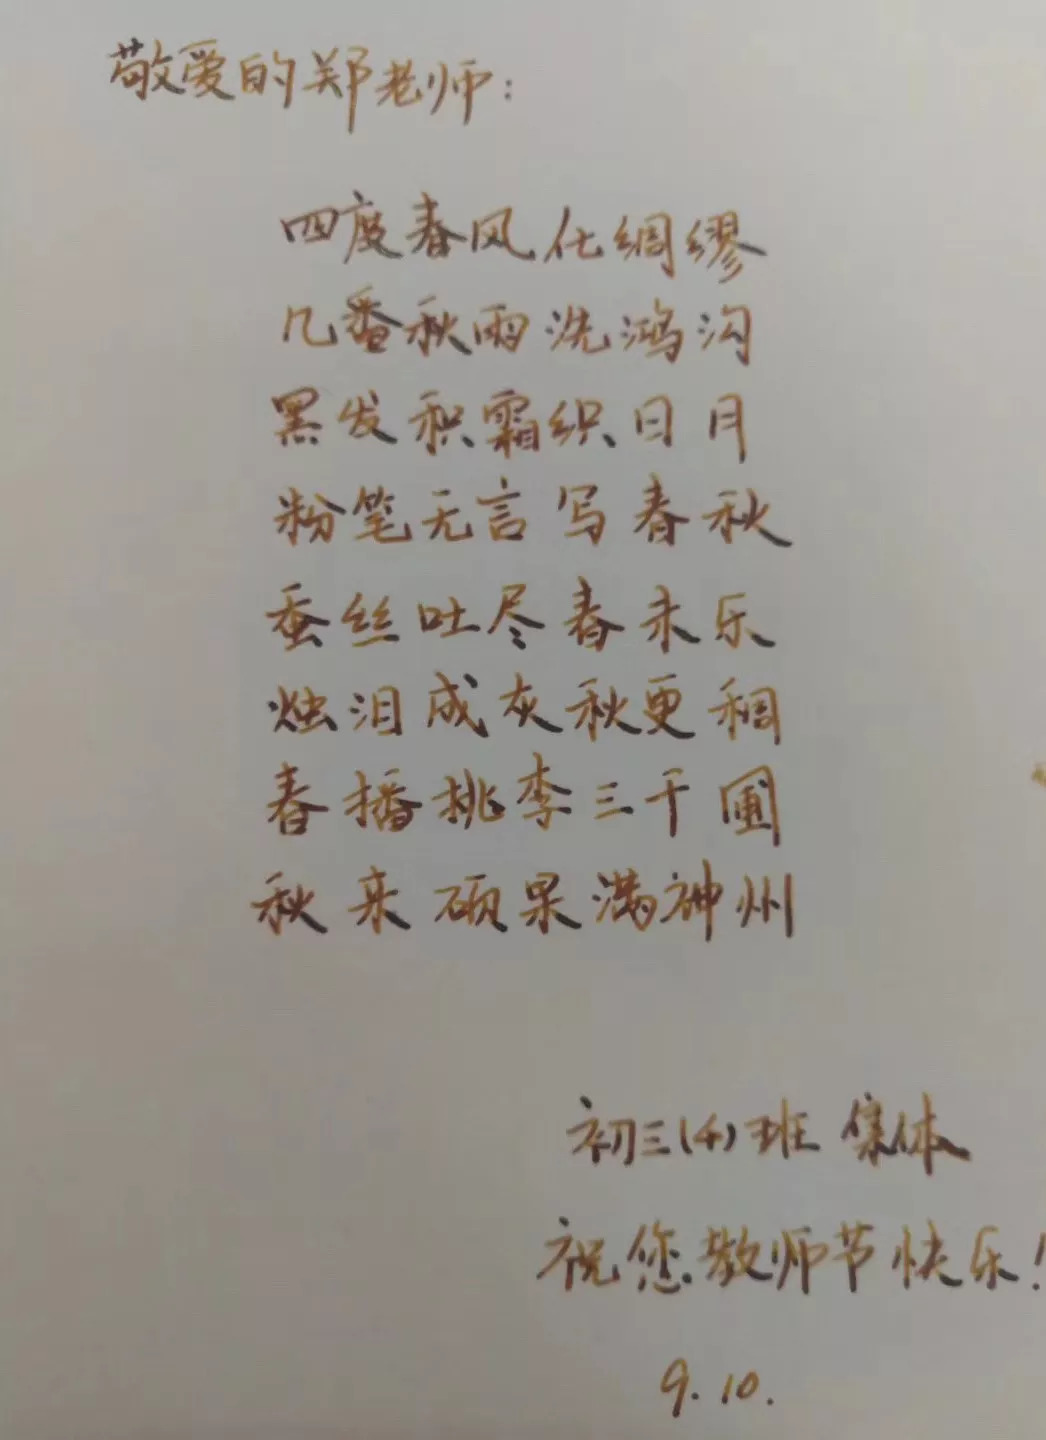 敬爱的郑老师：
四度春风化绸缪
几番秋雨洗鸿沟
黑发积霜织日月
粉笔无言写春秋
蚕丝吐尽春未乐
烛泪成灰秋更稠
春播桃李三千圃
秋来硕果满神州
初三(4)班 集体
祝您教师节快乐！
9.10.